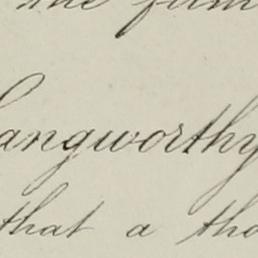 the
Langworthy
that a tho